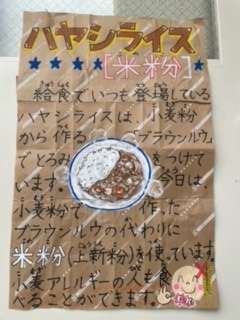 ハヤシライス
[米粉]
給食でいつも登場している
ハヤシライスは、小麦粉
から作る「ブラウンルウ」
でとろみをつけて
います。今日は、
小麦粉で作った
ブラウンルウの代わりに
米粉(上新粉)を使っています。
小麦アレルギーの人も食
べることができます。